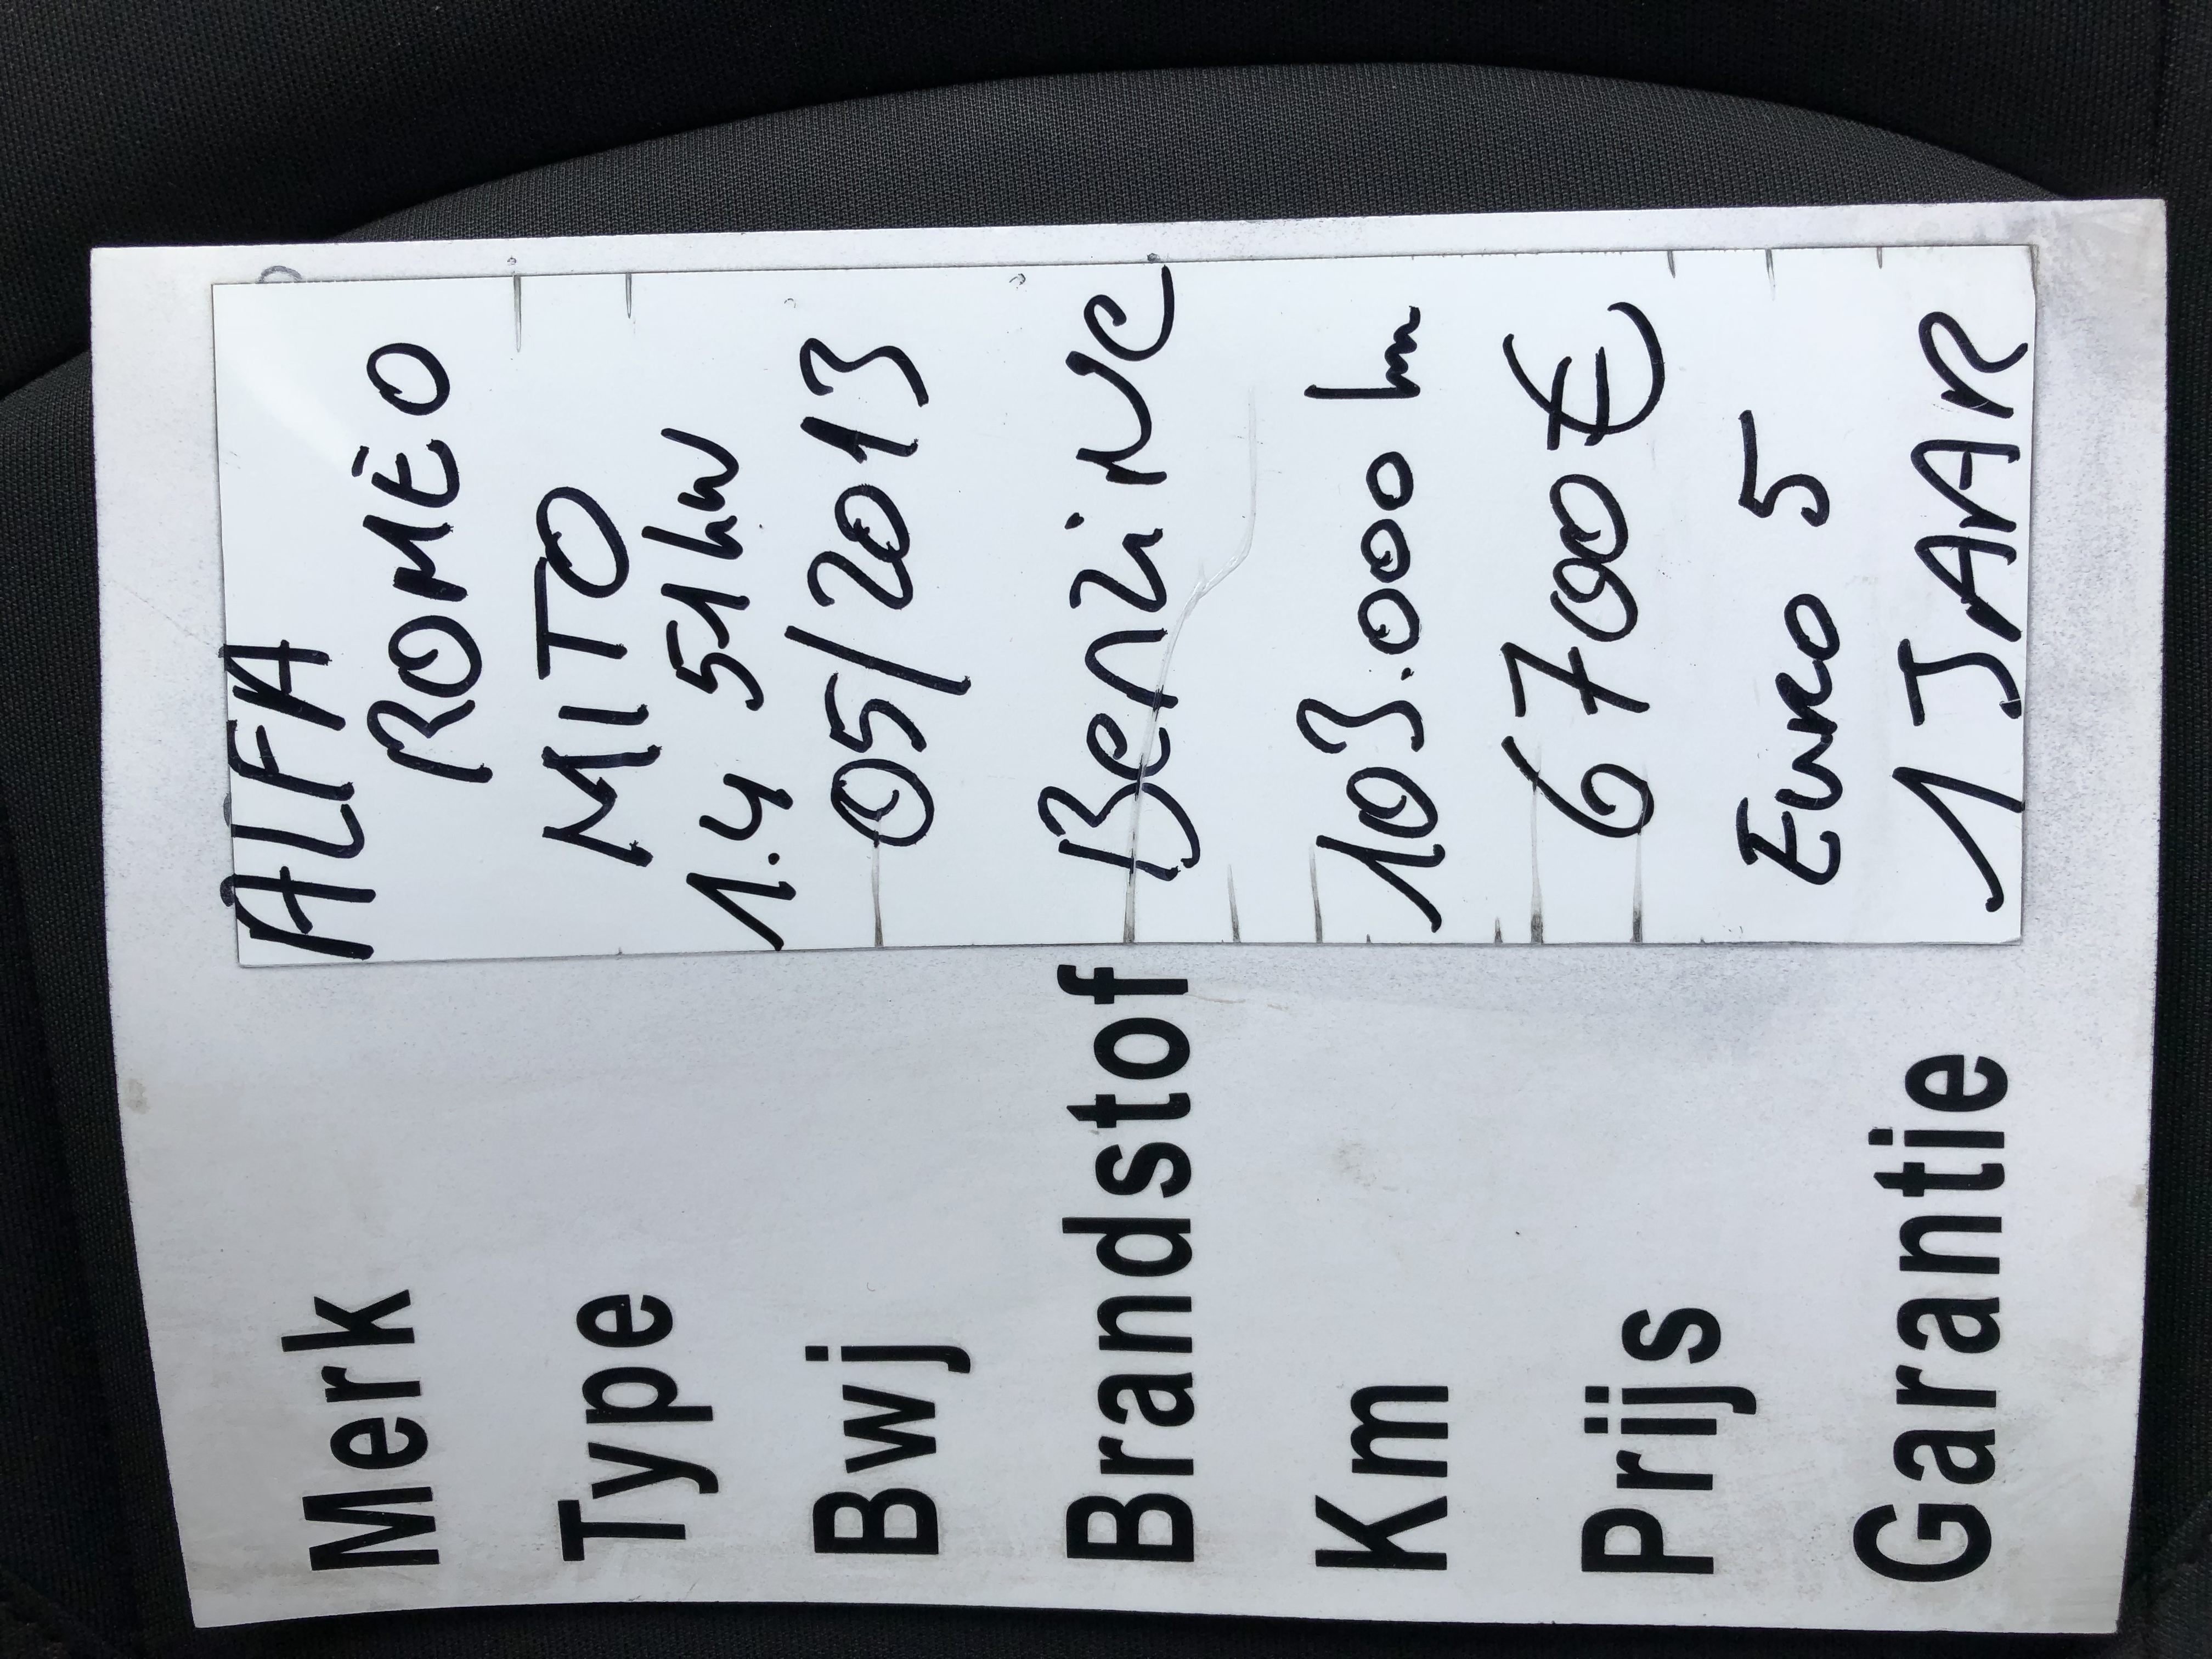 Merk ALFA
ROMÉO
Type MITO
1.4 51 kw
Bwj 05/2013
Brandstof Benzine
Km 103.000 km
Prijs 6700€
Euro 5
Garantie 1 JAAR